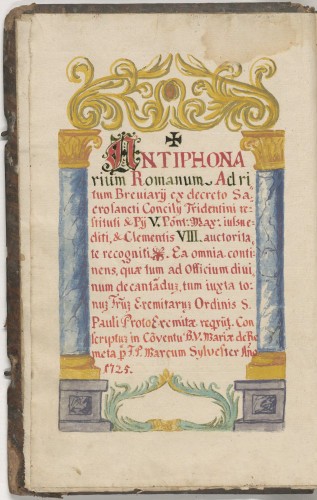 ✠
ANTIPHONA
rium Romanum Ad ri
tum Breviarij ex decreto Sa,
crosancti Concilij Tridentini re=
stituti & Pij V. Pont: Max: iussu e=
diti, & Clementis VIII. auctorita,
te recogniti. Ea omnia conti=
nens, quæ tum ad Officium divi,
num decantãdũ, tum iuxta to=
Eremitarũ Ordinis S.
Pauli ProtoEremitæ requir̃. Con
scriptus in Cõventu B.V. Mariæ de Re
meta P. Marcum Sylvester Año
1725.